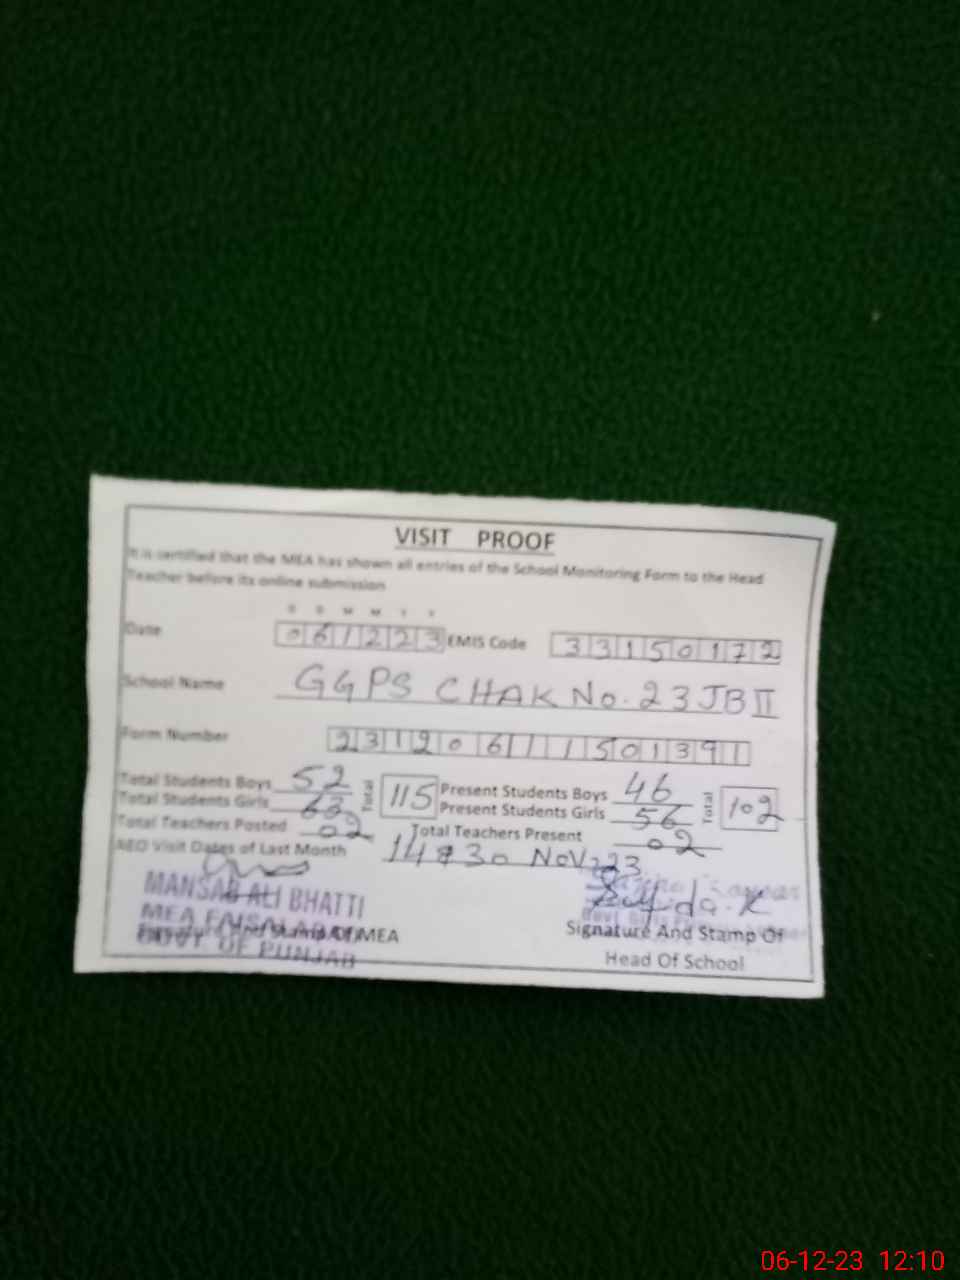 VISIT PROOF
It is certified that the MEA has shown all entries of the School Monitoring Form to the Head
Teacher before its online submission
D D M M Y Y
Date 061223 EMIS Code 33150172
School Name GGPS CHAK No. 23 JB II
Form Number 231206111501391
Total Students Boys 52 Total 115 Present Students Boys 46 Total 102
Total Students Girls 63 Present Students Girls 56
Total Teachers Posted 02 Total Teachers Present 02
AEO Visit Dates of Last Month 14 & 30 Nov, 23
MANSAB ALI BHATTI
MEA FAISALABAD
MEA
GOVT. OF PUNJAB
Signature And Stamp Of
Head Of School
06-12-23 12:10